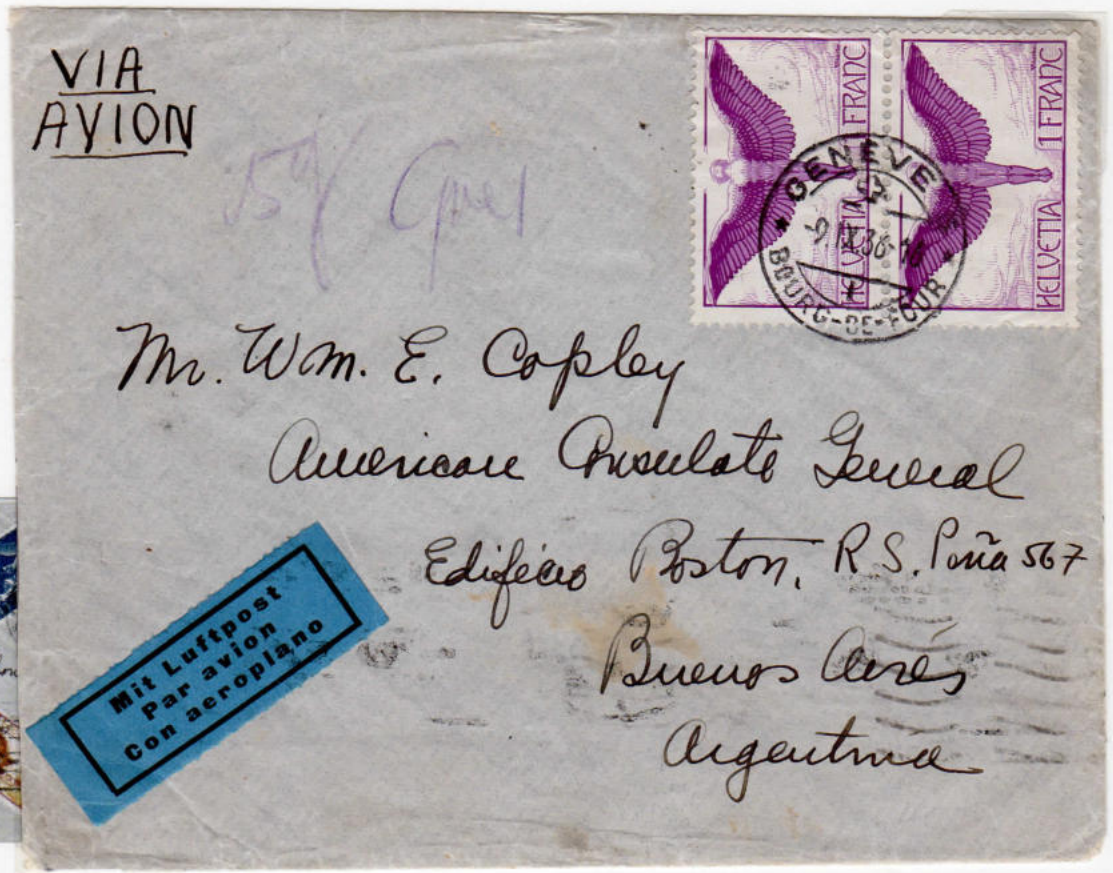 VIA
AVION
1 FRANC
HELVETIA
1 FRANC
HELVETIA
GENÈVE
-9.IX.36-18
BOURG-DE-FOUR
Mr. Wm. E. Copley
American Consulate General
Edificio Boston, R S. Peña 567
Buenos Aires
Argentina
Mit Luftpost
Par avion
Con aeroplano